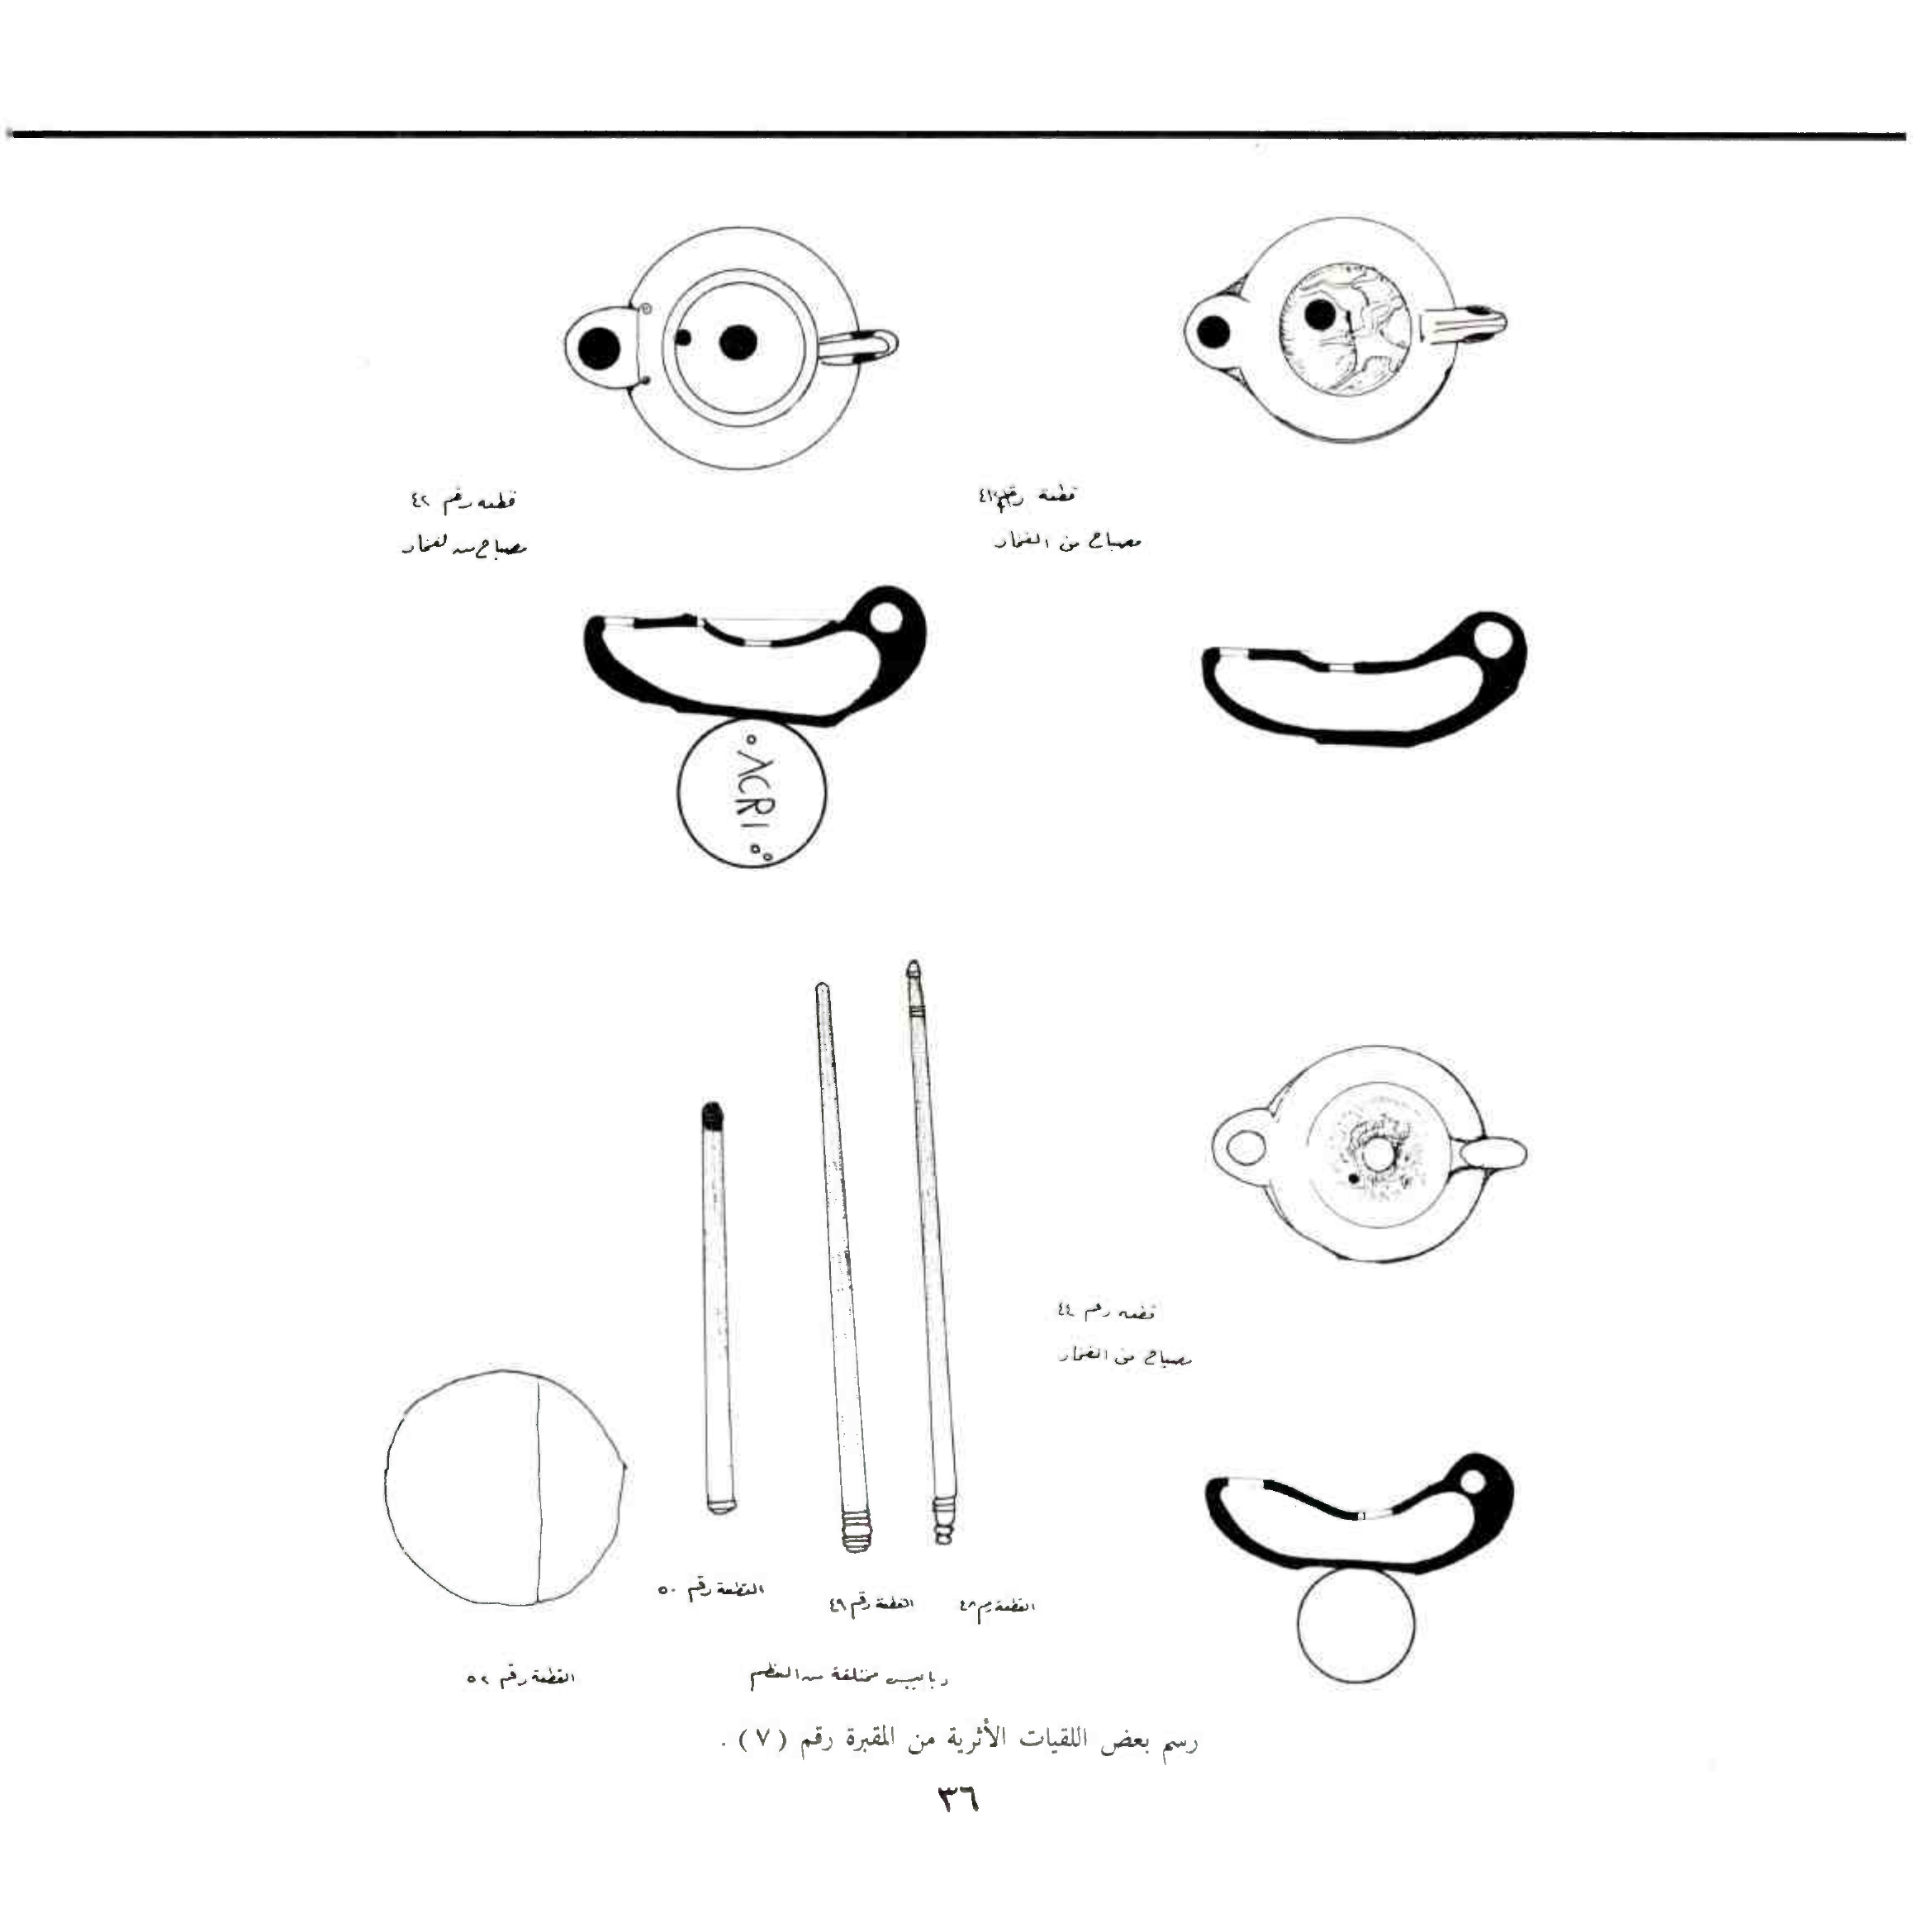 قطعة رقم ٤١
مصباح من الفخار
قطعه رقم ٤٢
مصباح من الفخار
ΛCRI
قطعه رقم ٤٤
مصباح من الفخار
القطعة رقم ٤٨
القطعة رقم ٤٩
القطعة رقم ٥٠
دبابيس مختلفة من العظم
القطعة رقم ٥٢
رسم بعض اللقيات الأثرية من المقبرة رقم (٧) .
٣٦